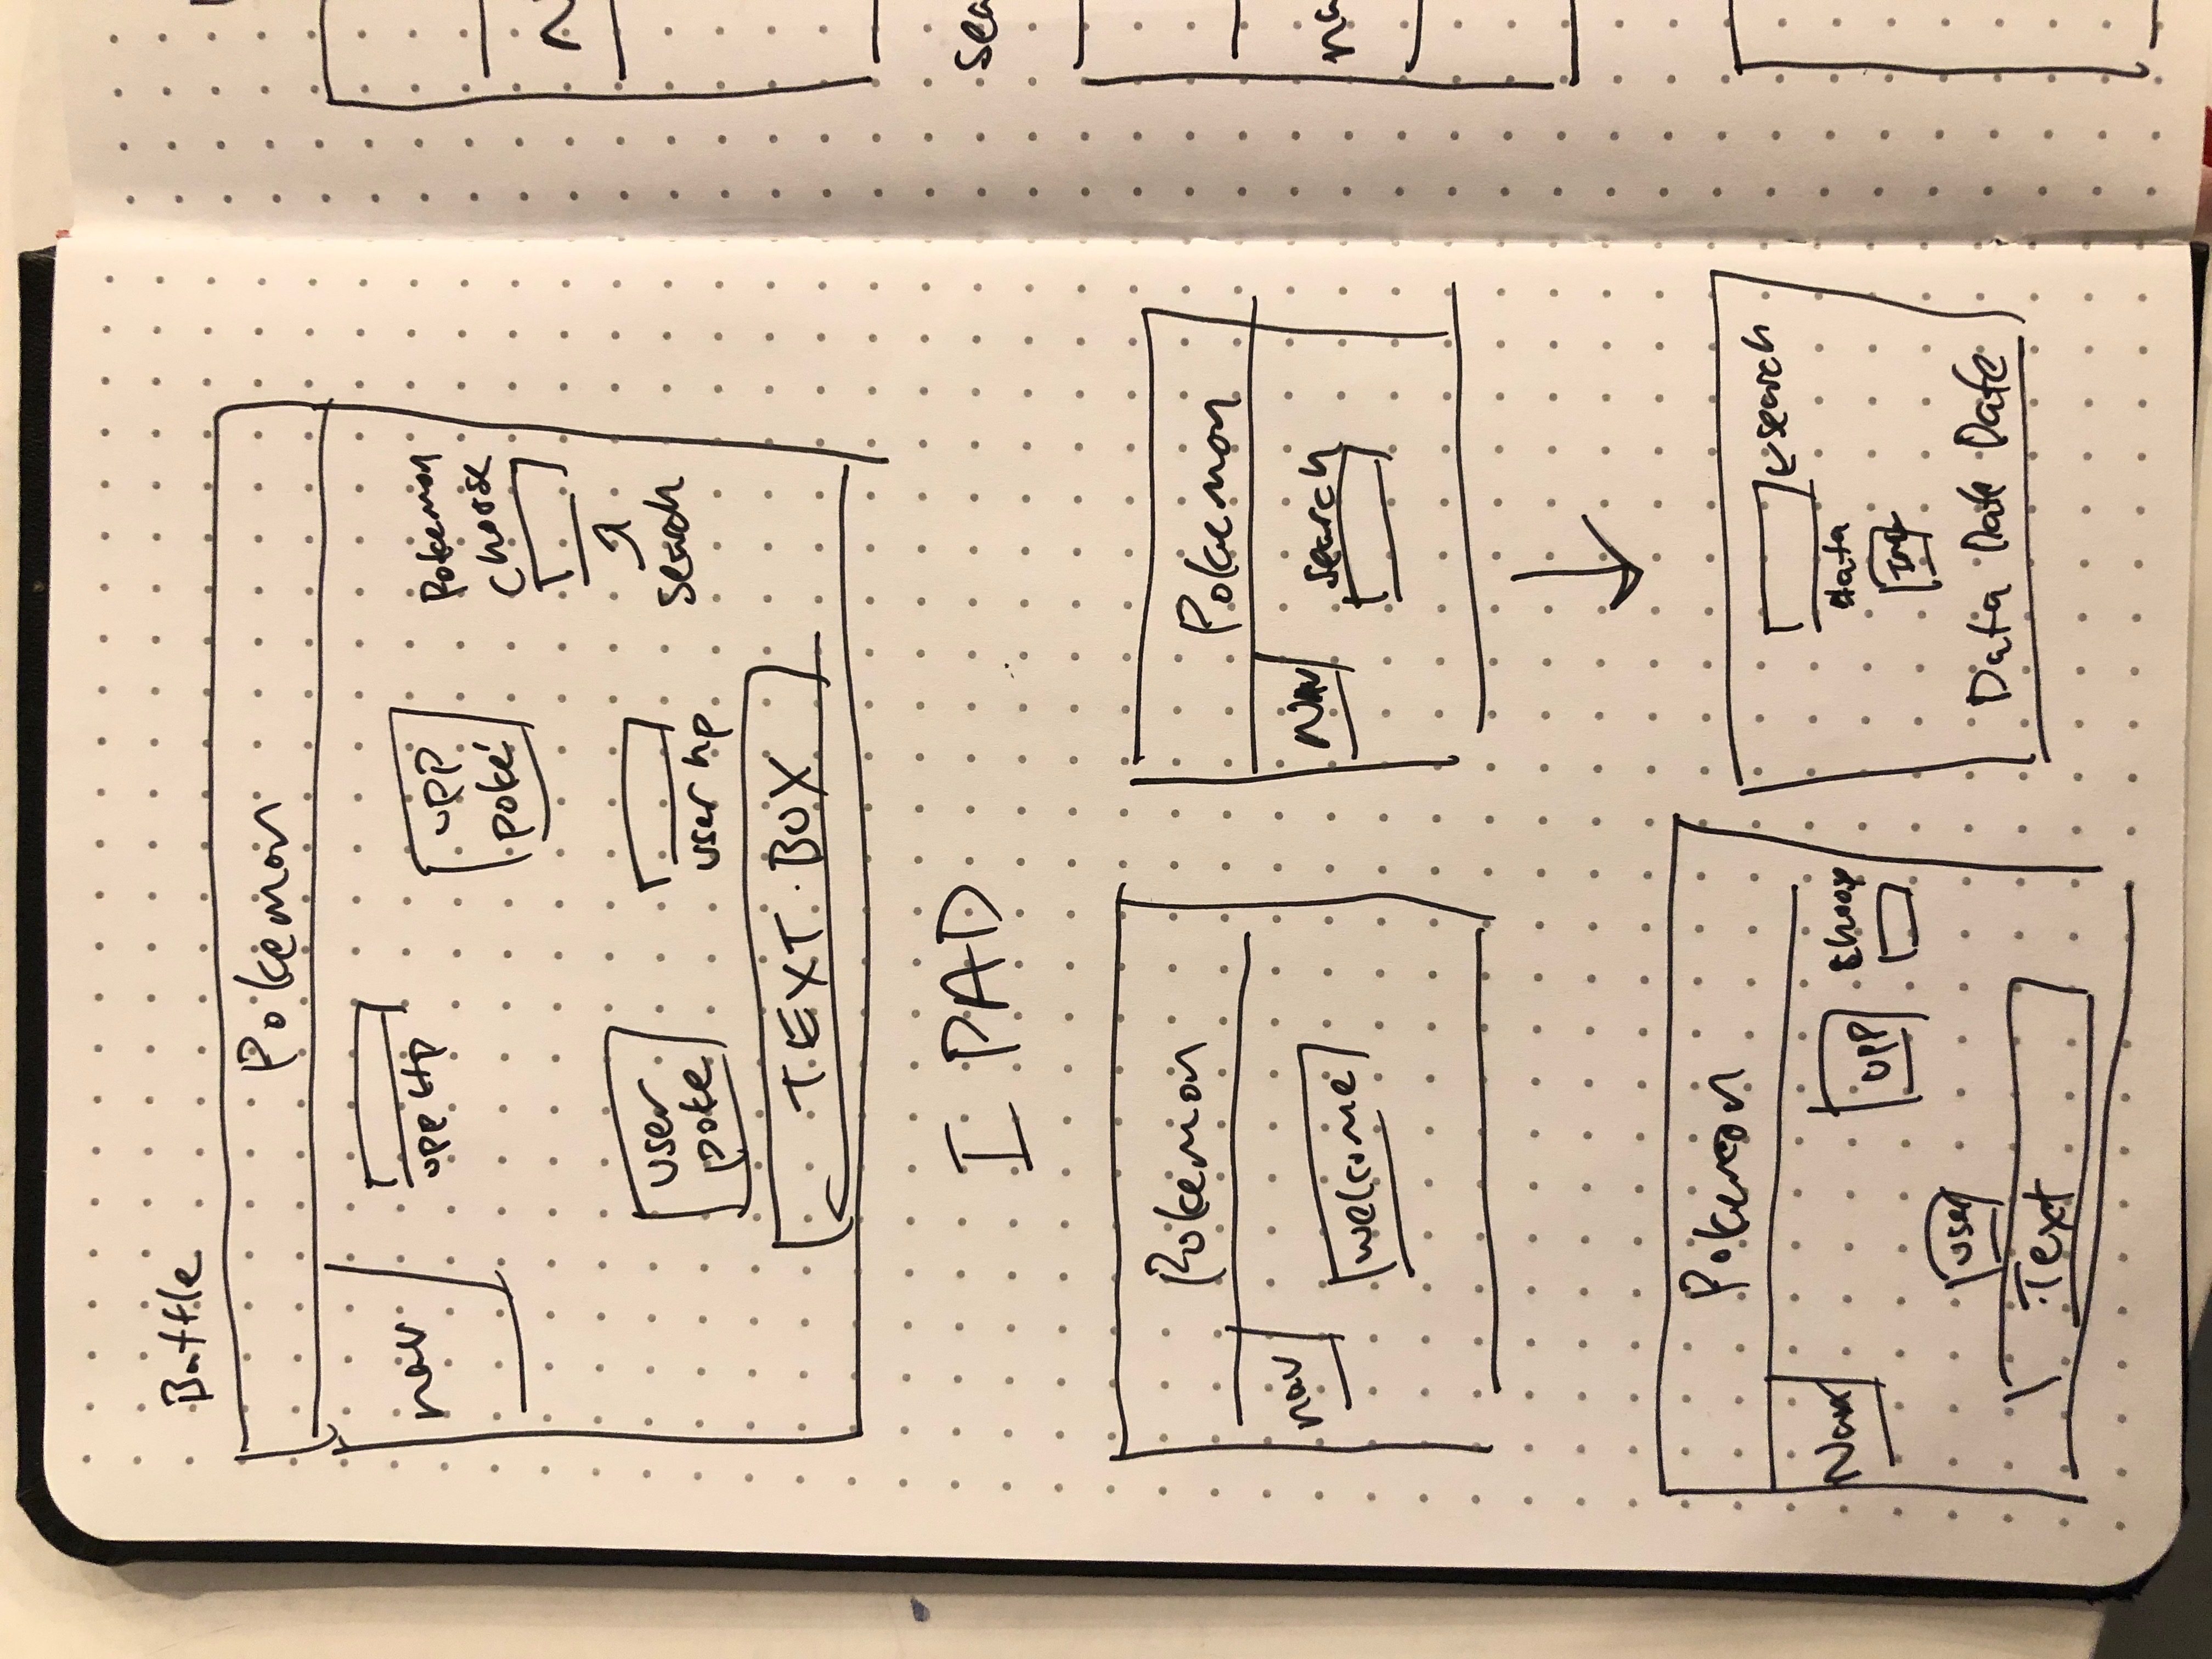 Battle
Pokemon
nav
opp Hp
opp
poke'
Pokemon
choose
search
user
poke
user hp
TEXT BOX
I PAD
Pokemon
nav
welcome
Pokemon
Nav
search
Pokemon
Nav
opp
choose
user
Text
search
data
Img
Data Date Date
N
sea
na